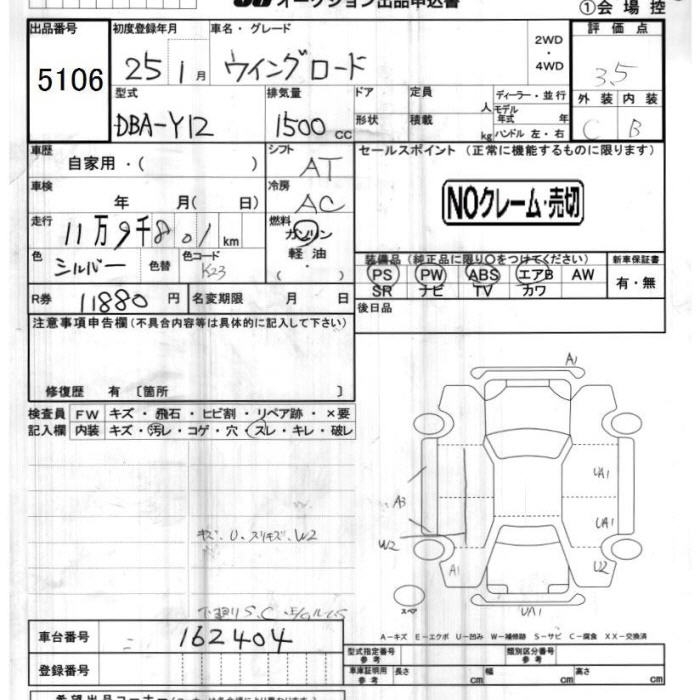 オークション出品申込書
①会場控
出品番号 初度登録年月 車名・グレード 2WD・4WD 評価点
5106 25 1月 ウイングロード 3.5
型式 排気量 ドア 定員 人 ディーラー・並行 外装 内装
DBA-Y12 1500cc 形状 積載 kg モデル年式 年 ハンドル 左・右 C B
車歴 シフト セールスポイント (正常に機能するものに限ります)
自家用・( ) AT
車検 冷房 NOクレーム・売切
年 月( 日) AC
走行 燃料
11万9千801km ガソリン
色 色替 色コード 軽油 装備品(純正品に限り○をつけてください) 新車保証書
シルバー K23 ( ・ ) PS PW ABS エアB AW 有・無
SR ナビ TV カワ
R券 11880円 名変期限 月 日 後日品
注意事項申告欄(不具合内容等は具体的に記入して下さい)
修復歴 有 〔箇所 〕
検査員 FW キズ・飛石・ヒビ割・リペア跡・×要
記入欄 内装 キズ・汚レ・コゲ・穴・スレ・キレ・破レ
A1
UA1
A3 UA1
キズ・U・スリキズ・W2 W2
A1 U2
スペア
UA1
下廻りS.C
A-キズ E-エクボ U-凹み W-補修跡 S-サビ C-腐食 XX-交換済
車台番号 162404
型式指定番号 参考 類別区分番号 参考
登録番号 車庫証明用 参考 長さ cm 幅 cm 高さ cm
希望出品コーナー